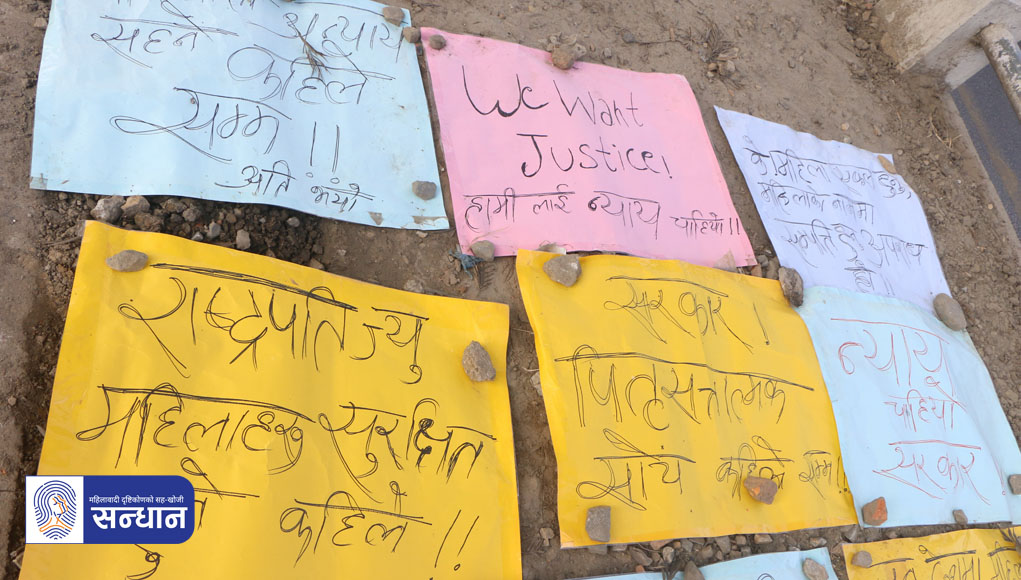 सहने
कहिले
सम्म !!
अति भयो
We Want
Justice!
हामी लाई न्याय चाहियो !!
के महिला
महिलाको नाममा
सम्पति
हो !!
राष्ट्रपति ज्यु
महिलाहरु सुरक्षित
कहिले !!
सरकार !
पितृसत्तात्मक
सोच कहिले सम्म !
न्याय
चाहियो
सरकार
महिलावादी दृष्टिकोणको सह-खोजी
सन्धान